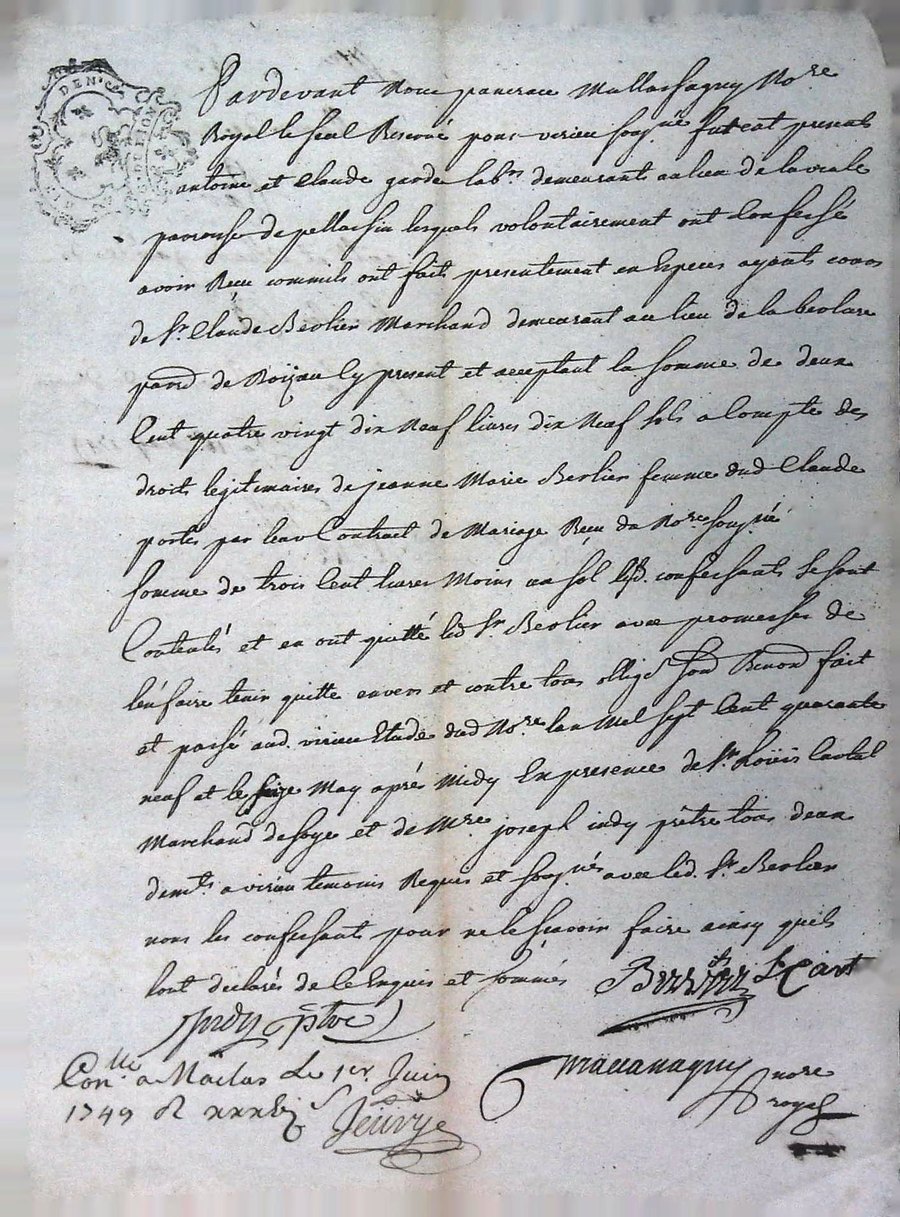 DEN^rs
G. DE LION
Pardevant Nous pancrace Mallassagny No^re
Royal le seul Reservé pour virieu sougné furent presents
antoine et Claude garde lab^rs demeurant au lieu de la viale
paroisse de pellassin lesquels volontairement ont Confessé
avoir Receu comm'ils ont fait presentement en Especes ayants cours
de S^r Claude Berlier Marchand demeurant au lieu de la
parr^d de Roizau Cy present et acceptant la somme de deux
Cent quatre vingt dix Neuf livres dix Neuf sols a Compte des
droits legitimaires de jeanne Marie Berlier femme dud Claude
portés par leur Contract de Mariage Receu du No^re sougné
somme de trois Cent livres Moins un sol lesd. confessants se sont
Contentés et en ont quitté led S^r Berlier avec promesses de
l'en faire tenir quitte envers et contre tous fait
et passé aud. virieu Etude dud No^re lan Mil sept Cent quarante
neuf et le seize May après Midy En presence de S^r Loüis
Marchand de soye et de M^re joseph indy prêtre tous deux
dem^ts a virieu temoins Requis et sougnés avec led. S^r Berlier
nons les confessants pour ne le scavoir faire ainsy quils
lont declarés de ce Enquis et sommés
Berlier
Jndy ptre
Con^lle a Maclas Le 1er Juin
1749
Jeurye
Mallassagny nore
royal